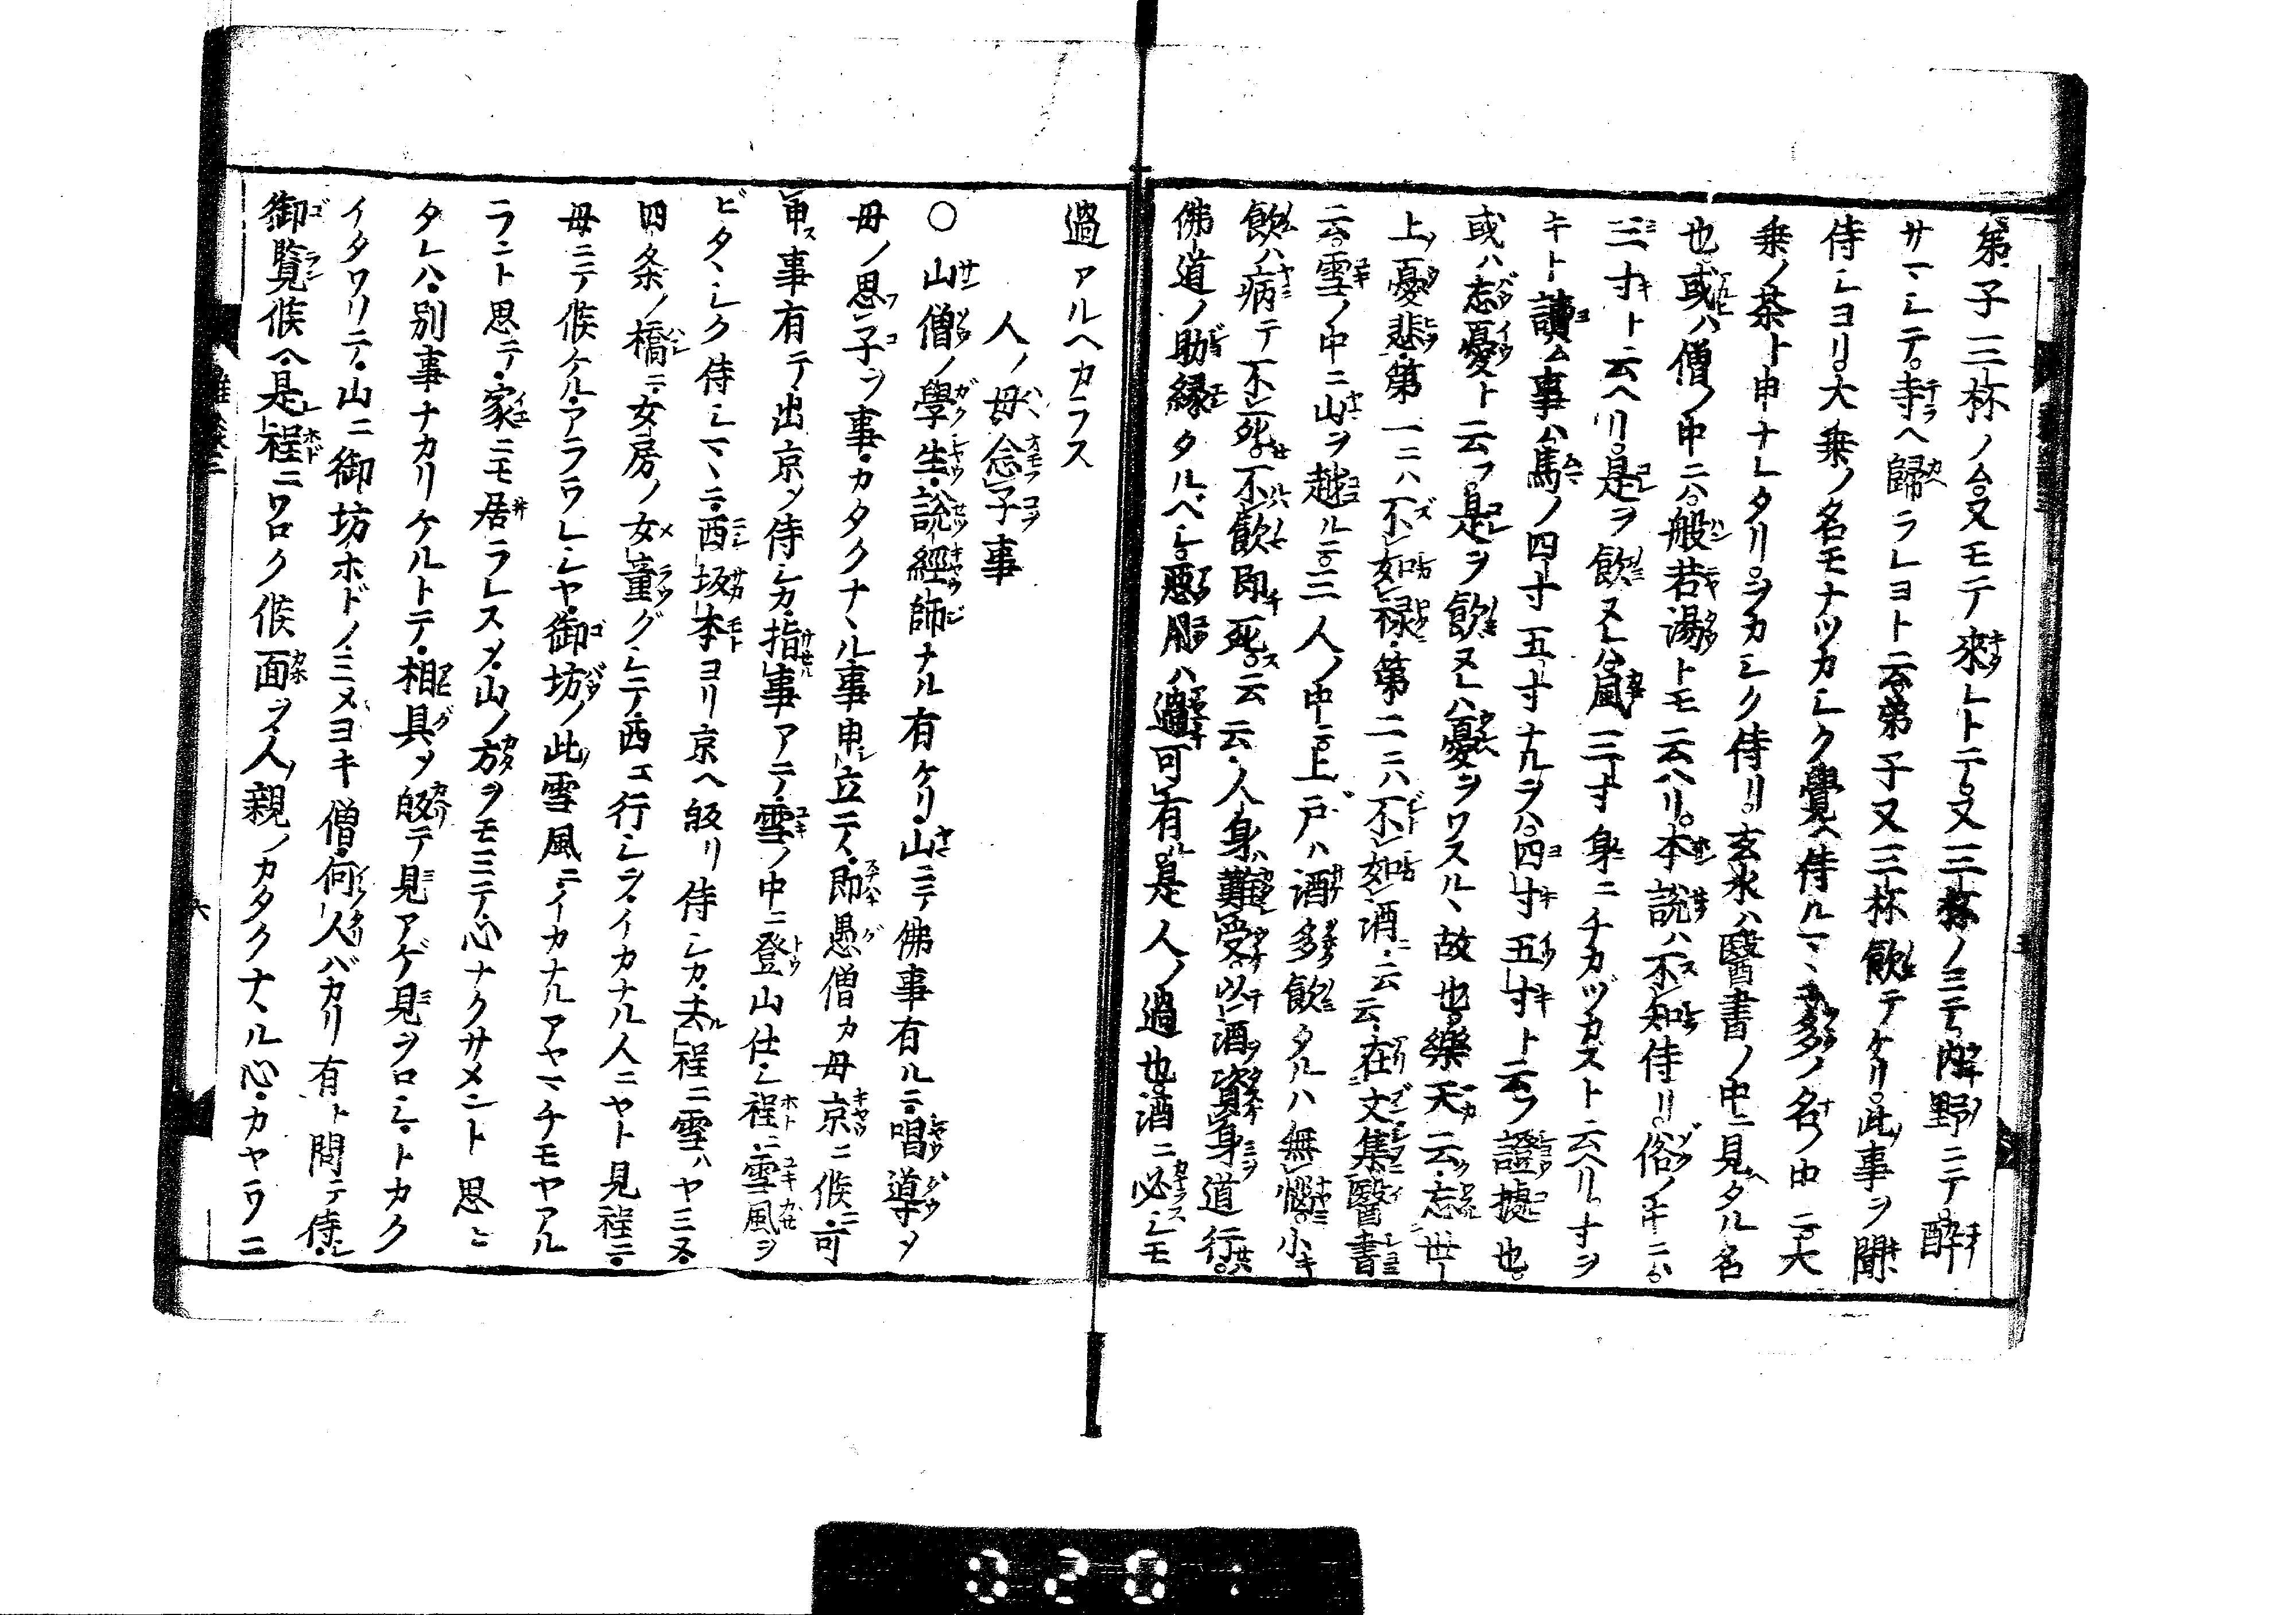 弟子三杯ノム。又モテ來レトテ。又三杯ノミテ。内野ニテ。酔
サマシテ。寺ヘ歸ラレヨト云。弟子又三杯飲テケリ。此事ヲ聞
侍シヨリ。大乗ノ名モナツカシク覺ヘ侍ルマヽ。多ノ名ノ中ニ。大
乗ノ茶ト申ナレタリ。ヲカシク侍リ。玄水ハ醫書ノ中ニ見ヘタル名
也。或ハ僧ノ中ニハ。般若湯トモ云ヘリ。本説ハ不知侍リ。俗ノ中ニハ。
三寸ト云ヘリ。是ヲ飲ヌレハ。風三寸身ニチカヅカスト云ヘリ。寸ヲ
キト讀ム事ハ。馬ノ四寸五寸ナルヲハ。四寸五寸ト云フ證據也。
或ハ忘憂ト云フ。是ヲ飲ヌレハ。憂ヲワスルヽ故也。樂天云。忘世
上憂悲。第一ニハ不如禄。第二ニハ不如酒。云云。在文集。醫書
云。雪ノ中ニ山ヲ越ルニ。三人ノ中ニ。上戸ハ酒多飲タルハ無悩。小キ
飲ハ病テ不死。不飲即死。云云。人身難受。以酒資身道行。
佛道ノ助縁タルベシ。惡服ハ過可有。是人ノ過也。酒ニ必シモ
過アルヘカラス
人ノ母念子事
○山僧ノ學生。説經師ナル有ケリ。山ニテ佛事有ルニ。唱導メ
母ノ思子ヲ事。カタクナヽル事申立テ。即愚僧カ母京ニ候。可
申事有テ。出京シ侍シカ。指事アテ。雪ノ中ニ登山仕シ程ニ。雪風ヲ
ビタヽシク侍シマヽニ。西坂本ヨリ京ヘ皈リ侍シカ。去程ニ雪ハヤミヌ。
四条ノ橋ニ。女房ノ女童グシテ。西エ行シヲ。イカナル人ニヤト見程ニ。
母ニテ候ケル。アラワレシヤ。御坊ノ此雪風ニ。イカナルアヤマチモヤアル
ラント思テ。家ニモ居ラレスメ。山ノ方ヲモミテ心ナクサメント思ヒ
タレハ。別事ナカリケルトテ。相具メ皈テ見アゲ見ヲロシ。トカク
イタワリテ。山ニ御坊ホドノ。ミメヨキ僧。何人バカリ有ト問テ侍シ。
御覧候ヘ。是程ニワロク候面ヲ。人親ノカタクナヽル心。カヤウニ
六